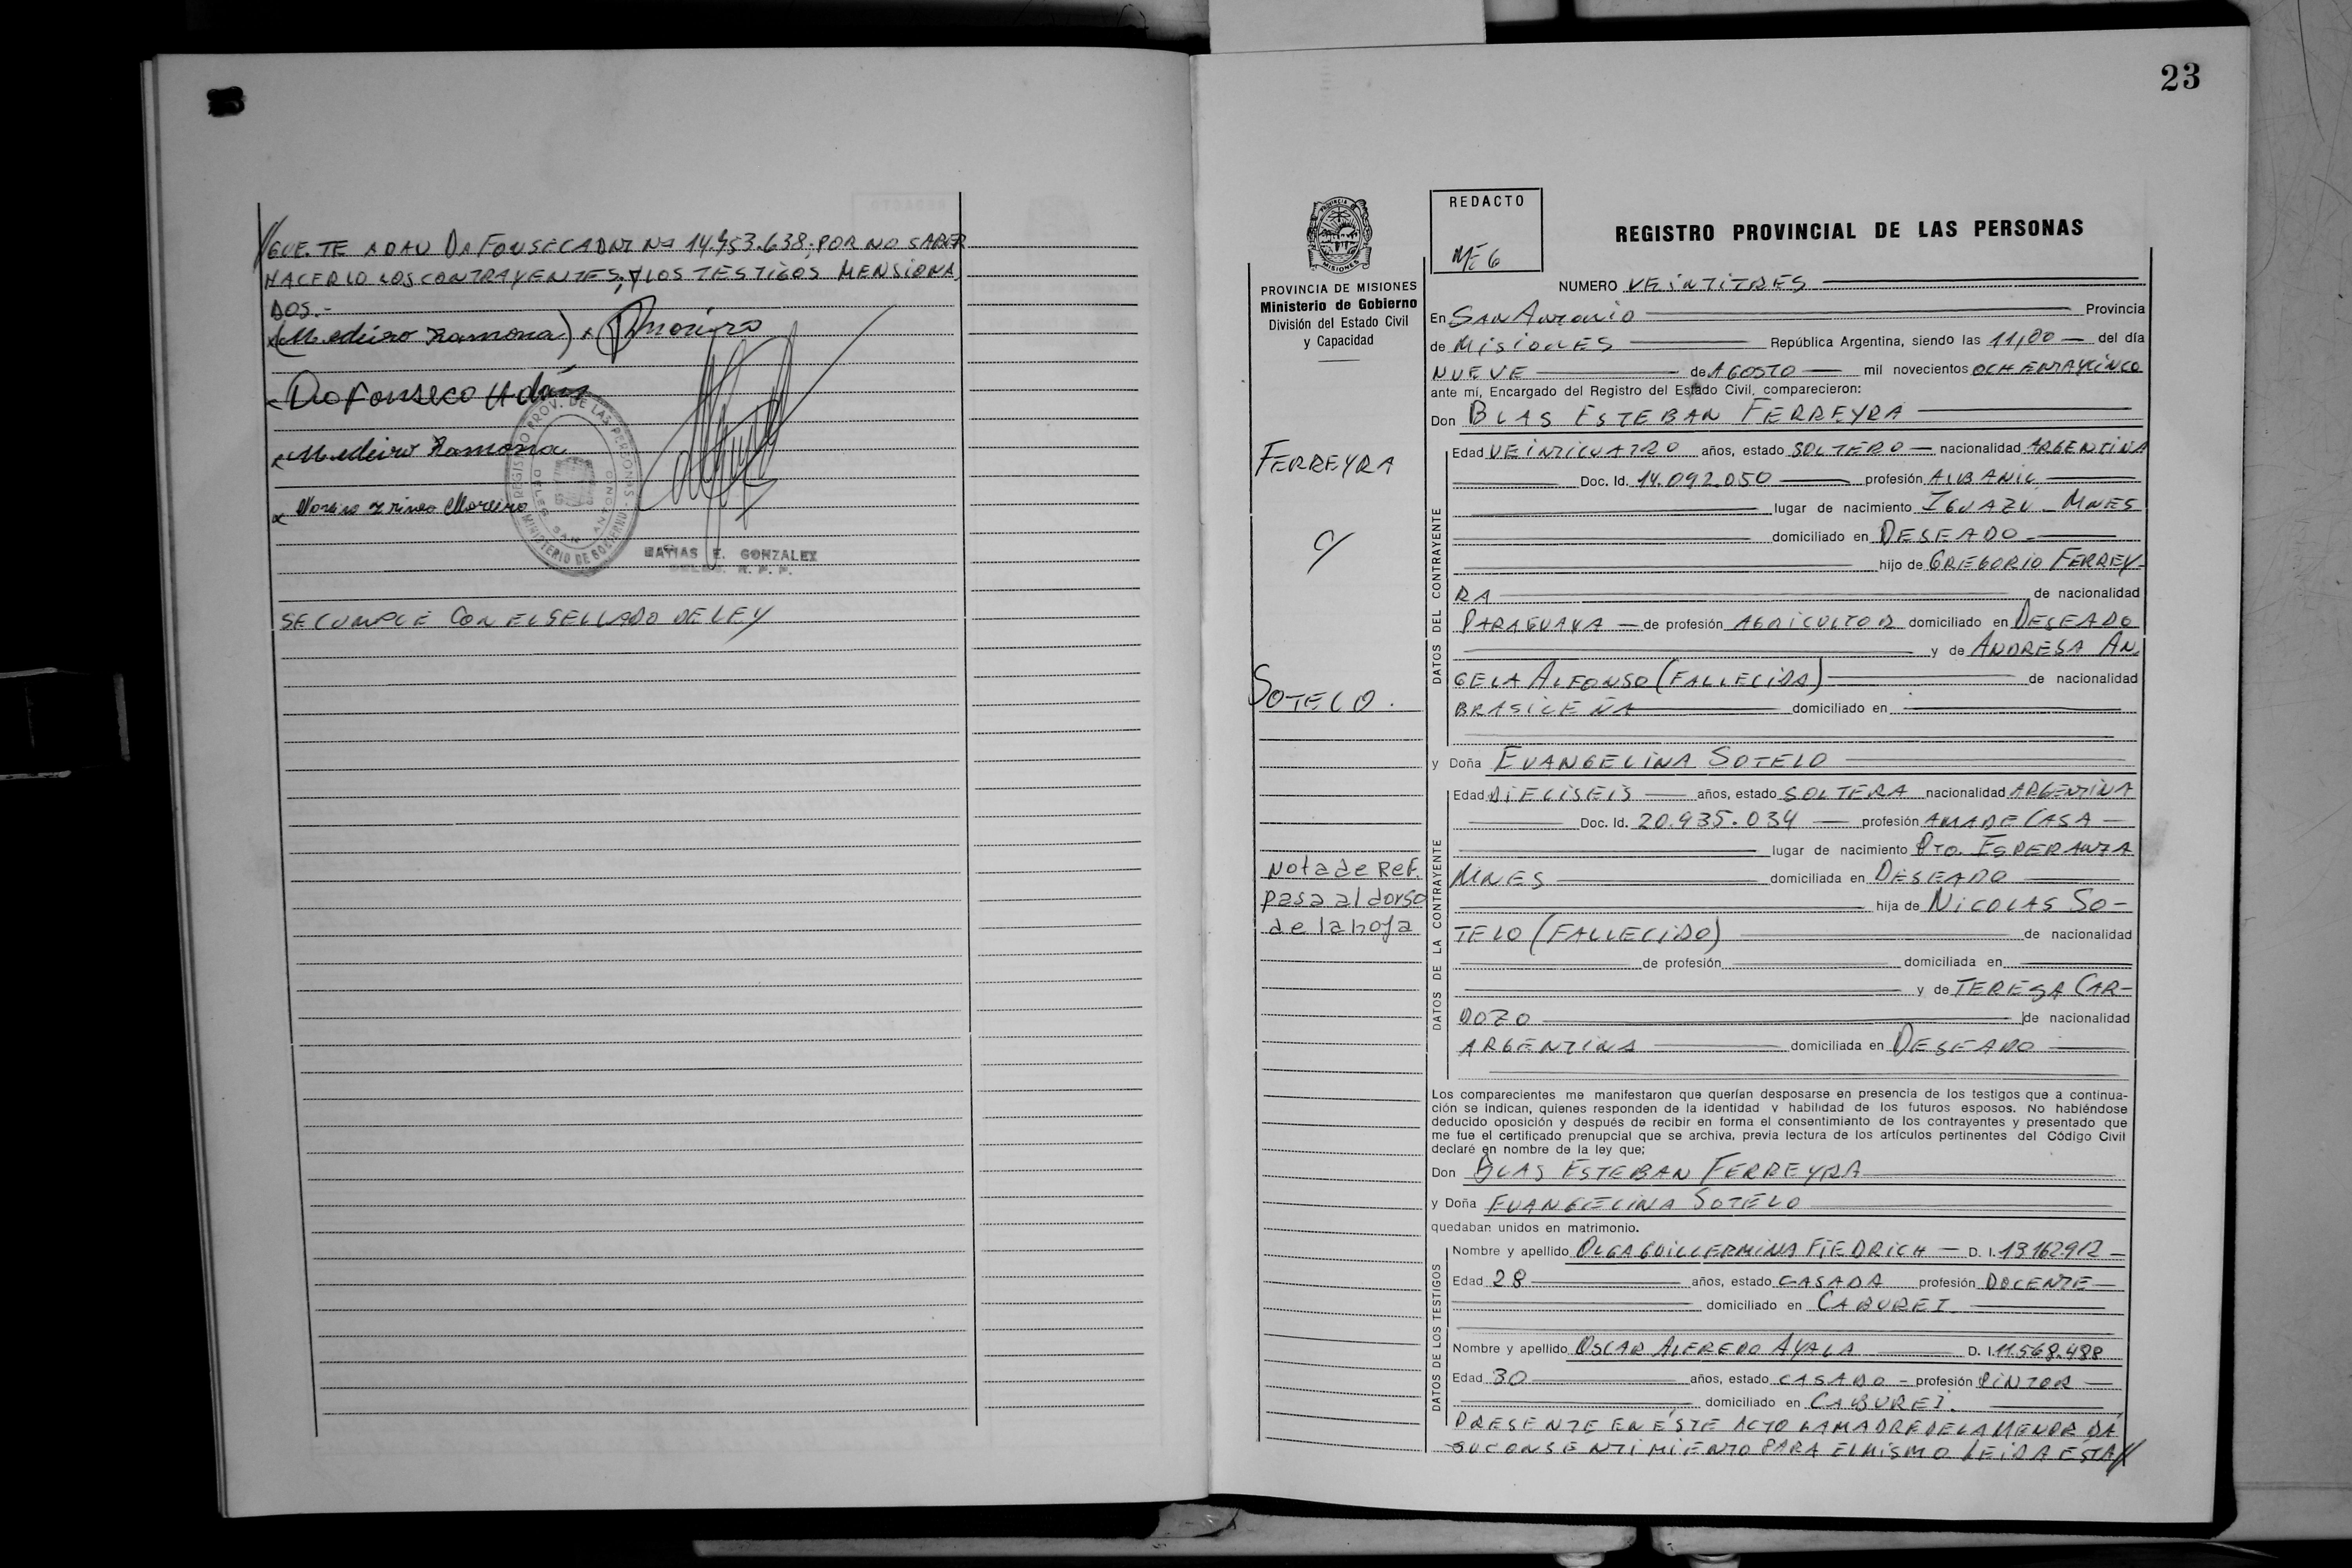 //GUE.TE ADAN DA FONSECA DNI Nº 14.453.638; POR NO SABER
HACERLO LOS CONTRAYENTES; Y LOS TESTIGOS MENSIONA,
DOS.-
x(Medeiro Ramona) x
x Da Fonseco Adán
x Medeiro Ramona
x Moreiro
REGISTRO PROV. DE LAS PERSONAS
MINISTERIO DE GOBIERNO
SAN ANTONIO
MATIAS E. GONZALEZ
SE CUMPLE CON EL SELLADO DE LEY
23
PROVINCIA DE MISIONES
Ministerio de Gobierno
División del Estado Civil
y Capacidad
FERREYRA
c/
SOTELO.
Nota de Ref.
pasa al dorso
de la hoja
REDACTO
REGISTRO PROVINCIAL DE LAS PERSONAS
NUMERO VEINTITRES
En SAN ANTONIO Provincia
de MISIONES República Argentina, siendo las 11,00 del día
NUEVE de AGOSTO mil novecientos OCHENTAYCINCO
ante mí, Encargado del Registro del Estado Civil, comparecieron:
Don BLAS ESTEBAN FERREYRA
DATOS DEL CONTRAYENTE
Edad VEINTICUATRO años, estado SOLTERO nacionalidad ARGENTINA
Doc. Id. 14.092.050 profesión ALBANIL
lugar de nacimiento IGUAZU - MNES
domiciliado en DESEADO
hijo de GREGORIO FERREY-
RA de nacionalidad
PARAGUAYA de profesión AGRICULTOR domiciliado en DESEADO
y de ANDRESA AN,
GELA ALFONSO (FALLECIDA) de nacionalidad
BRASILEÑA domiciliado en
y Doña EVANGELINA SOTELO
DATOS DE LA CONTRAYENTE
Edad DIECISEIS años, estado SOLTERA nacionalidad ARGENTINA
Doc. Id. 20.935.034 profesión AMA DE CASA
lugar de nacimiento PTO. ESPERANZA
MNES domiciliada en DESEADO
hija de NICOLAS SO-
TELO (FALLECIDO) de nacionalidad
de profesión domiciliada en
y de TERESA CAR-
DOZO de nacionalidad
ARGENTINA domiciliada en DESEADO
Los comparecientes me manifestaron que querían desposarse en presencia de los testigos que a continua-
ción se indican, quienes responden de la identidad y habilidad de los futuros esposos. No habiéndose
deducido oposición y después de recibir en forma el consentimiento de los contrayentes y presentado que
me fue el certificado prenupcial que se archiva, previa lectura de los artículos pertinentes del Código Civil
declaré en nombre de la ley que;
Don BLAS ESTEBAN FERREYRA
y Doña EVANGELINA SOTELO
quedaban unidos en matrimonio.
DATOS DE LOS TESTIGOS
Nombre y apellido OLGA GUILLERMINA FIEDRICH D. I. 13162912
Edad 28 años, estado CASADA profesión DOCENTE
domiciliado en CABUREI
Nombre y apellido OSCAR ALFREDO AYALA D. I. 11.568.488
Edad 30 años, estado CASADO - profesión PINTOR
domiciliado en CABUREI.
PRESENTE EN ÉSTE ACTO LA MADRE DE LA MENOR DA
SU CONSENTIMIENTO PARA EL MISMO LEIDA ESTA//